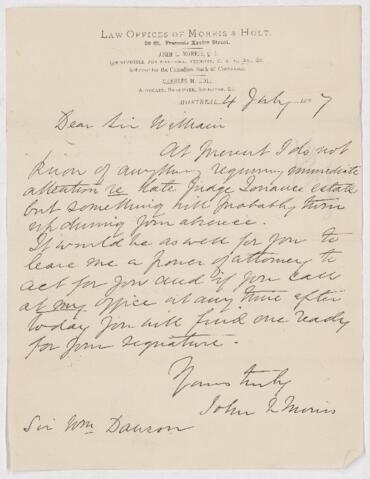 LAW OFFICES OF MORRIS & HOLT.
John L. Morris, Q.C.
Solicitor for the Canadian Bank of Commerce
Charles M. Holt,
Advocate, Barrister, Solicitor, &c.
MONTREAL, 4 July 1887
Dear Sir William
At present I do not
know of anything requiring immediate
attention re late Judge Torrance estate
but something will probably turn
up during your absence.
It would be as well for you to
leave me a power of attorney to
act for you and if you call
at my office at any time after
today you will find one ready
for your signature.
Yours truly
John L Morris
Sir Wm Dawson